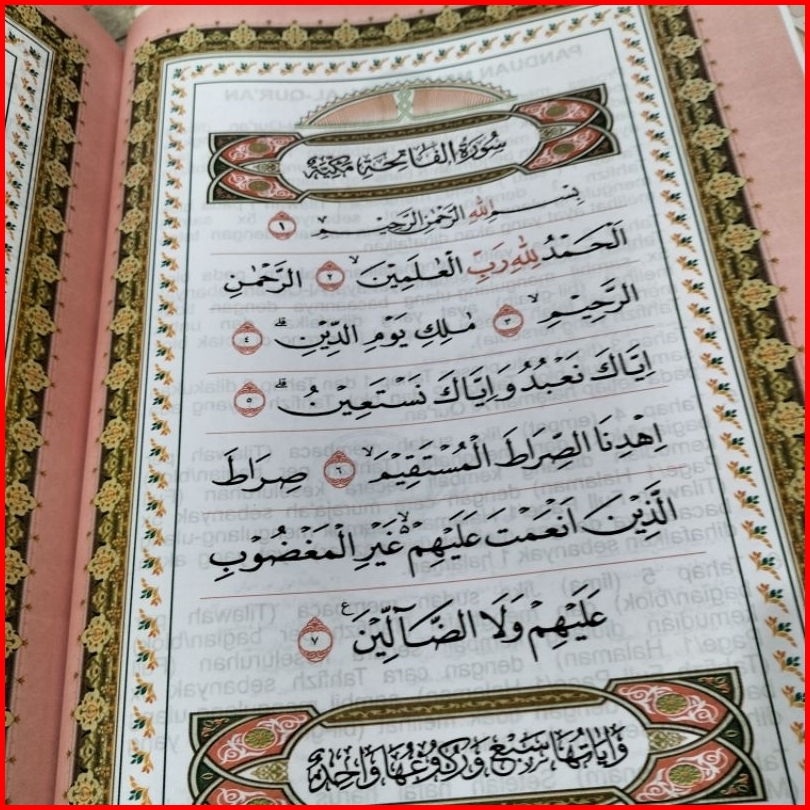 سُوْرَةُ الْفَاتِحَةِ مَكِّيَّةٌ
بِسْمِ اللّٰهِ الرَّحْمٰنِ الرَّحِيْمِ ۙ ١
اَلْحَمْدُ لِلّٰهِ رَبِّ الْعٰلَمِيْنَ ۙ ٢ الرَّحْمٰنِ
الرَّحِيْمِ ۙ ٣ مٰلِكِ يَوْمِ الدِّيْنِ ۗ ٤
اِيَّاكَ نَعْبُدُ وَاِيَّاكَ نَسْتَعِيْنُ ۗ ٥
اِهْدِنَا الصِّرَاطَ الْمُسْتَقِيْمَ ۙ ٦ صِرَاطَ
الَّذِيْنَ اَنْعَمْتَ عَلَيْهِمْ ۙ غَيْرِ الْمَغْضُوْبِ
عَلَيْهِمْ وَلَا الضَّاۤلِّيْنَ ࣖ ٧
وَاٰيَاتُهَا سَبْعٌ وَرُكُوْعُهَا وَاحِدٌ